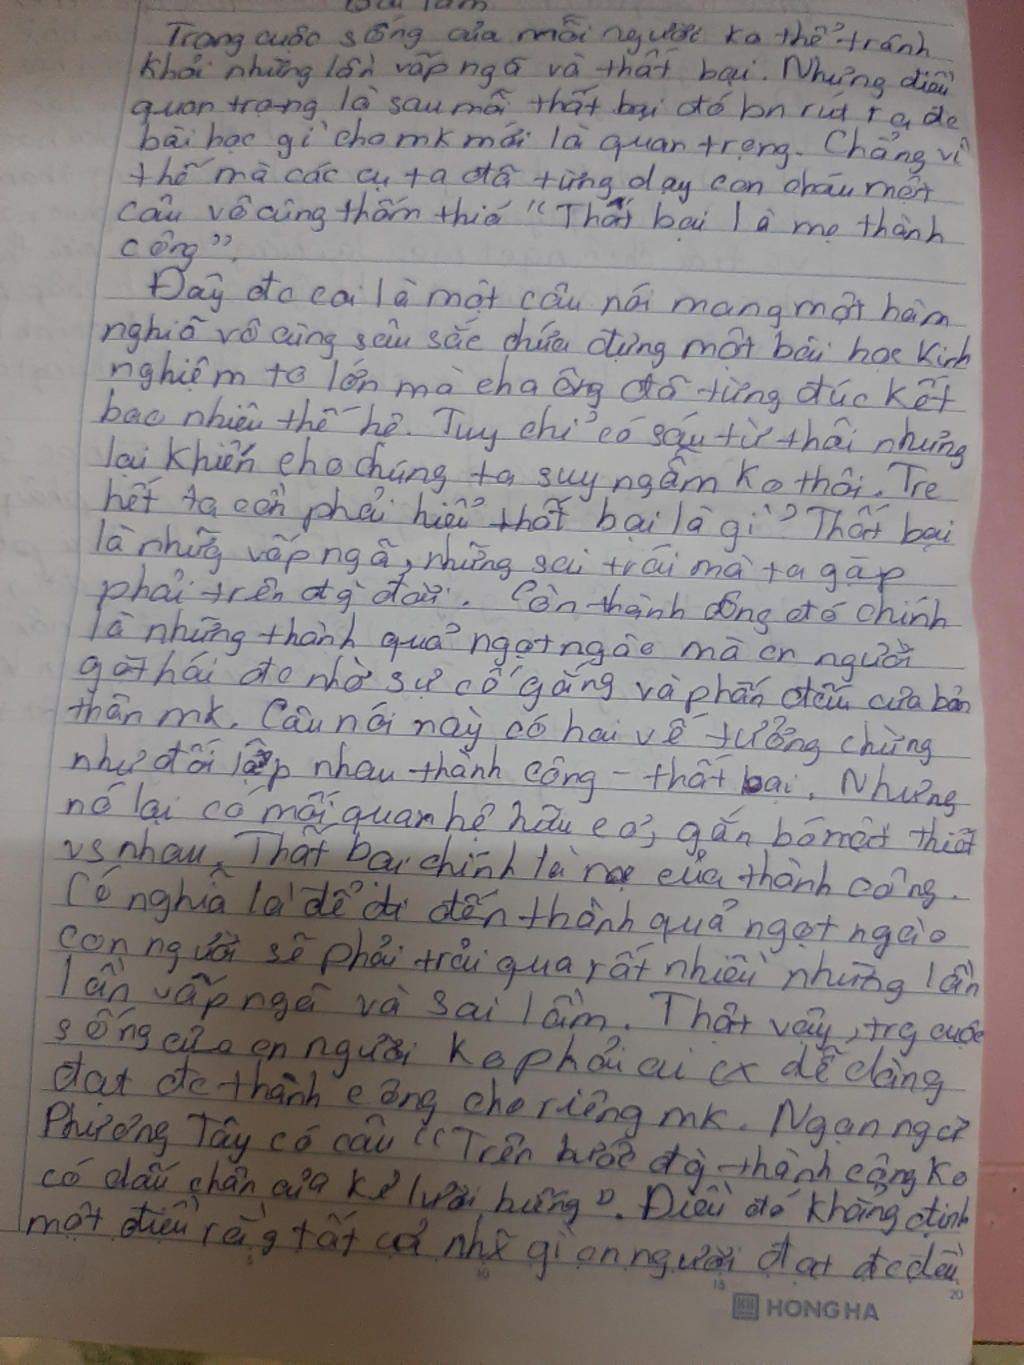 Bài làm
Trong cuộc sống của mỗi người ko thể tránh
khỏi những lần vấp ngã và thất bại. Nhưng điều
quan trọng là sau mỗi thất bại đó bn rút ra đc
bài học gì cho mk mới là quan trọng. Chẳng vì
thế mà các cụ ta đã từng dạy con cháu một
câu vô cùng thấm thía "Thất bại là mẹ thành
công".
Đây đc coi là một câu nói mang một hàm
nghĩa vô cùng sâu sắc chứa đựng một bài học kinh
nghiệm to lớn mà cha ông đã từng đúc kết
bao nhiêu thế hệ. Tuy chỉ có sáu từ thôi nhưng
lại khiến cho chúng ta suy ngẫm ko thôi. Trc
hết ta cần phải hiểu thất bại là gì? Thất bại
là những vấp ngã, những sai trái mà ta gặp
phải trên đg đời. Còn thành công đó chính
là những thành quả ngọt ngào mà cn người
gặt hái đc nhờ sự cố gắng và phấn đấu của bản
thân mk. Câu nói này có hai vế tưởng chừng
như đối lập nhau thành công - thất bại. Nhưng
nó lại có mối quan hệ hữu cơ, gắn bó mật thiết
vs nhau. Thất bại chính là mẹ của thành công.
Có nghĩa là để đi đến thành quả ngọt ngào
con người sẽ phải trải qua rất nhiều những lần
lần vấp ngã và sai lầm. Thật vậy, trg cuộc
sống của cn người ko phải ai cx dễ dàng
đạt đc thành công cho riêng mk. Ngạn ngữ
Phương Tây có câu "Trên bước đg thành công ko
có dấu chân của kẻ lười biếng". Điều đó khẳng định
một điều rằng tất cả nhữ gì cn người đạt đc đều
5 10 15 20
HONG HA